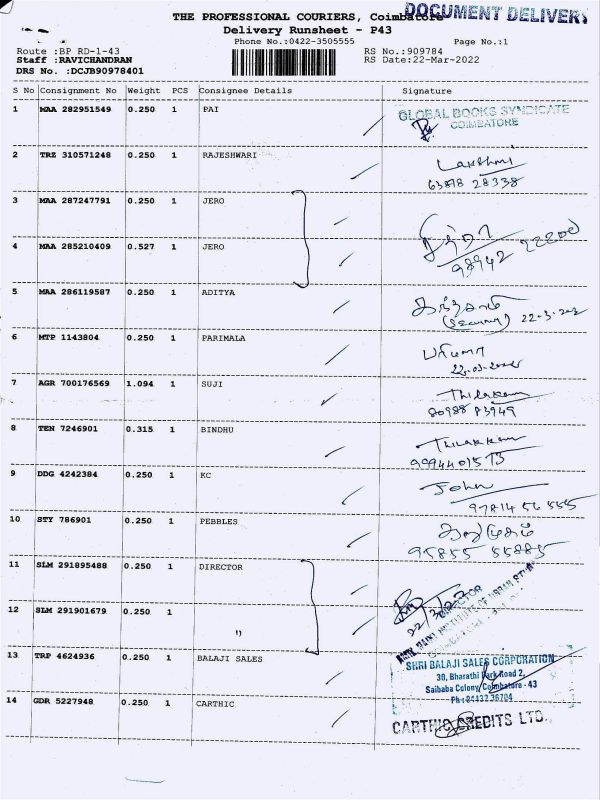 THE PROFESSIONAL COURIERS, Coimbatore
DOCUMENT DELIVERY
Delivery Runsheet - P43
Phone No.:0422-3505555 Page No.:1
Route :BP RD-1-43 RS No.:909784
Staff :RAVICHANDRAN RS Date:22-Mar-2022
DRS No. :DCJB90978401
S No Consignment No Weight PCS Consignee Details Signature
1 MAA 282951549 0.250 1 PAI
GLOBAL BOOKS SYNDICATE
COIMBATORE
2 TRZ 310571248 0.250 1 RAJESHWARI Lakshmi
63878 28338
3 MAA 287247791 0.250 1 JERO
4 MAA 285210409 0.527 1 JERO
98942
5 MAA 286119587 0.250 1 ADITYA
(Security)
6 MTP 1143804 0.250 1 PARIMALA
7 AGR 700176569 1.094 1 SUJI Thilakam
8 TEN 7246901 0.315 1 BINDHU Thilakkam
9 DDG 4242384 0.250 1 KC John
10 STY 786901 0.250 1 PEBBLES
95855 55885
11 SLM 291895488 0.250 1 DIRECTOR
DIRECTOR
12 SLM 291901679 0.250 1 "
13 TRP 4624936 0.250 1 BALAJI SALES
SHRI BALAJI SALES CORPORATION
30, Bharathi Park Road 2,
Saibaba Colony, Coimbatore - 43
14 GDR 5227948 0.250 1 CARTHIC
CARTHIC CREDITS LTD.